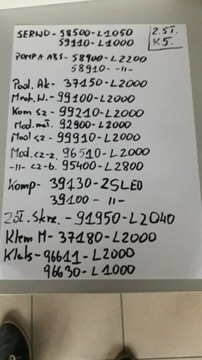 SERWO - 58500-L1050
59110-L1000
2.5T.
K5.
POMPA ABS - 58900-L2200
58910 - -11-
Pod. Ak - 37150-L2000
- 99100-L2000
Kom sz - 99210-L2000
Mod. - 92900-L2000
Mod sz - 99910-L2000
Mod. cz-z. 96510-L2000
-11- cz-b. 95400-L2800
Komp - 39130-2SLE0
39100 - -11-
Skrz. - 91950-L2040
Klem M - 37180-L2000
Klaks - 96611-L2000
96630-L1000